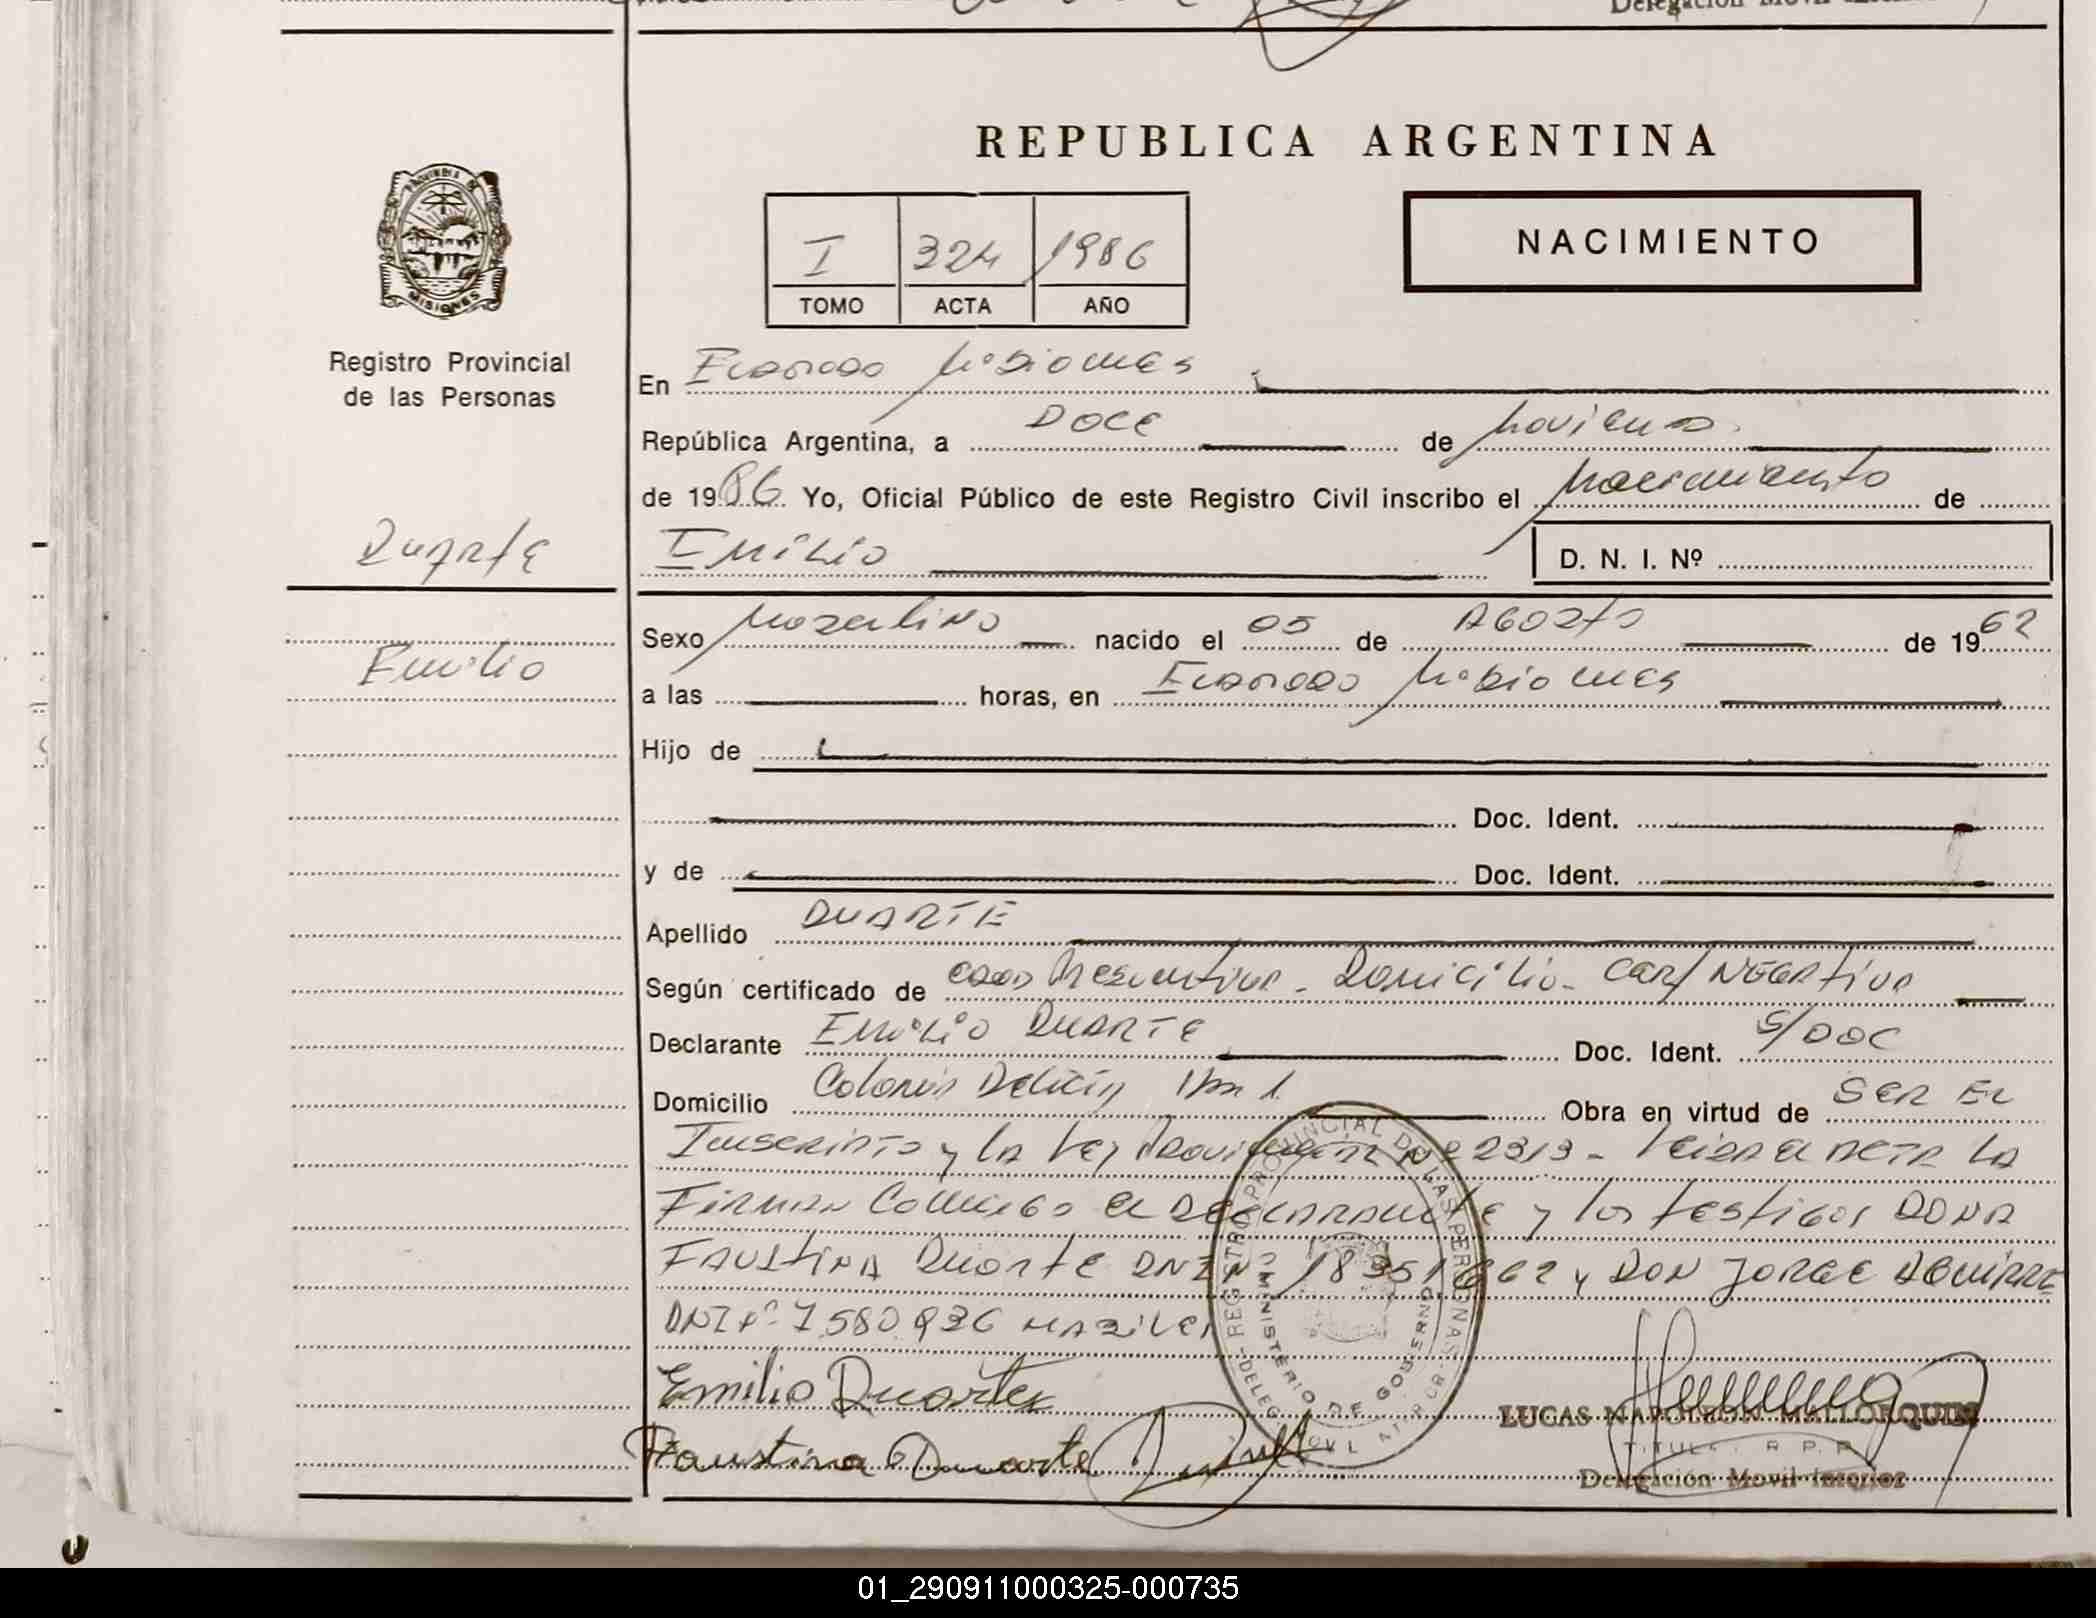 Delegación Movil Interior
REPUBLICA ARGENTINA
PROVINCIA DE
MISIONES
I 324 1986
TOMO ACTA AÑO
NACIMIENTO
Registro Provincial
de las Personas
En Eldorado Misiones
República Argentina, a DOCE de
de 1986 Yo, Oficial Público de este Registro Civil inscribo el Nacimiento de
Duarte
Emilio D. N. I. Nº
Sexo Masculino nacido el 05 de Agosto de 1962
Emilio
a las horas, en Eldorado Misiones
Hijo de
Doc. Ident.
y de Doc. Ident.
Apellido DUARTE
Según certificado de Edad Presuntiva - Domicilio - Cert Negativo
Declarante Emilio Duarte Doc. Ident. S/DOC
Domicilio Colonia Delicia Km 1 Obra en virtud de SER EL
Inscripto y la Ley Provincial Nº 2313 - Leida el Acta La
Firman Conmigo el DECLARANTE y los testigos DOÑA
FAUSTINA Duarte DNI Nº 18351662 y DON JORGE AGUIRRE
DNI Nº 7.580.936
Emilio Duarte
Faustina Duarte
REGISTRO PROVINCIAL DE LAS PERSONAS
MINISTERIO DE GOBIERNO
LUCAS NAPOLEON MALLORQUIN
TITULAR R.P.P.
Delegación Movil Interior
01_290911000325-000735